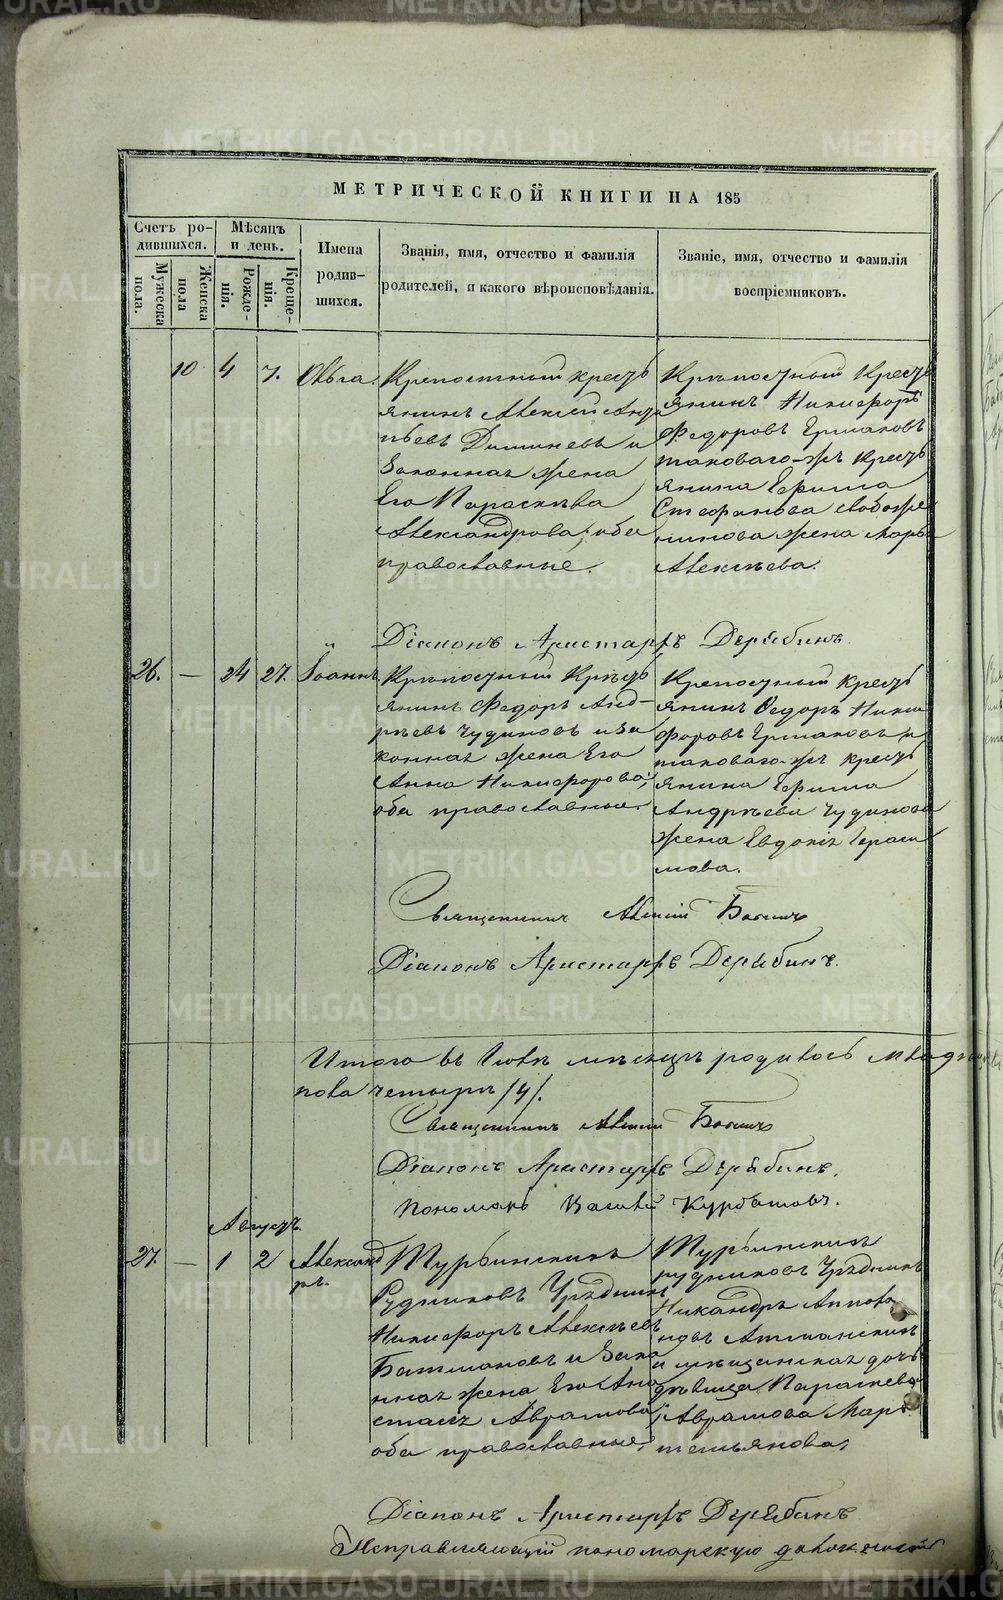 МЕТРИЧЕСКОЙ КНИГИ НА 185
Счетъ ро-
дившихся.
Мужеска пола.
Женска пола
Мѣсяцъ
и день.
Рожде-
нія.
Креще-
нія.
Имена
родив-
шихся.
Званія, имя, отчество и фамилія
родителей, и какого вѣроисповѣданія.
Званіе, имя, отчество и фамилія
воспріемниковъ.
10 4 7. Ольга.
Крепостный кресть
янинъ Алексѣй Андр
и
Законная жена
Его Параскѣва
Александрова, оба
православные.
Крѣпостный Кресть
янинъ Никифоръ
Федоровъ Ермаковъ
таковаго-жъ кресть
янина Ефима
Стефанова
жена Марья
Алексѣева.
Діаконъ Аристархъ Дерябинъ.
26. — 24 27. Іоаннъ
Крѣпостный Кресть
янинъ Федоръ Анд-
рѣевъ Чудиновъ и за
конная жена Его
Анна Никифорова,
оба православные.
Крепостный кресть
янинъ Федоръ Ники
форовъ Ермаковъ и
таковаго-жъ кресть
янина Ефима
Андрѣева Чудинова
жена Евдокія Гераси
мова.
Священникъ Алексій
Діаконъ Аристархъ Дерябинъ.
Итого въ Іюлѣ мѣсяцѣ родилось
четыре /4/.
Священникъ Алексій
Діаконъ Аристархъ Дерябинъ.
Пономарь Василій Курбатовъ.
Августъ.
27. — 1 2 Александ
ръ.
Турьинскихъ
Рудниковъ Урядникъ
Никифоръ Алексѣевъ
Батмановъ и Зако
нная жена Его Ана
стасія Аврамова,
оба православные.
Турьинскихъ
рудниковъ Урядникъ
Никандръ
и мѣщанская дочь
дѣвица Параскева
Аврамова Мар
темьянова.
Діаконъ Аристархъ Дерябинъ
Исправляющій пономарскую должность
METRIKI.GASO-URAL.RU